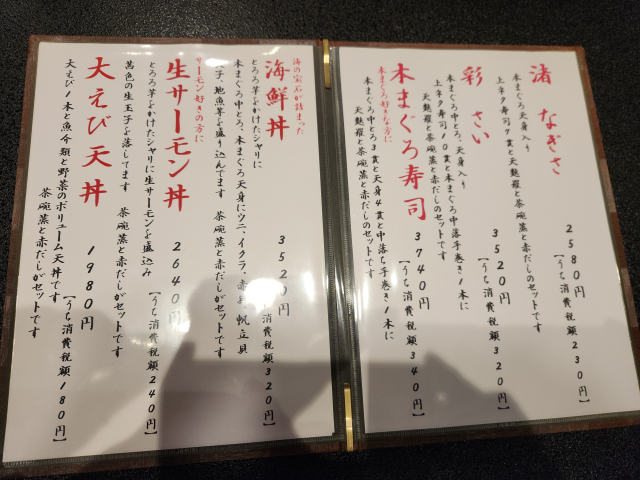 渚 なぎさ
本まぐろ中とろ、天身入り
上ネタ寿司7貫と天麩羅と茶碗蒸と赤だしのセットです
2580円
【うち消費税額230円】
彩 さい
本まぐろ中とろ、天身入り
上ネタ寿司10貫と本まぐろ中落手巻き1本に
天麩羅と茶碗蒸と赤だしのセットです
3520円
【うち消費税額320円】
本まぐろ好きな方に
本まぐろ寿司
本まぐろ中とろ3貫と天身4貫と中落ち手巻き1本に
天麩羅と茶碗蒸と赤だしのセットです
3740円
【うち消費税額340円】
海の宝石が詰まった
海鮮丼
とろろ芋をかけたシャリに
本まぐろ中とろ、本まぐろ天身にウニ、イクラ、赤 帆立貝
子、地魚等を盛り込んでます 茶碗蒸と赤だしがセットです
3520円
消費税額320円】
サーモン好きの方に
生サーモン丼
とろろ芋をかけたシャリに生サーモンを盛込み
黄色の生玉子を落してます 茶碗蒸と赤だしがセットです
2640円
【うち消費税額240円】
大えび天丼
大えび1本と魚介類と野菜のボリューム天丼です
茶碗蒸と赤だしがセットです
1980円
【うち消費税額180円】